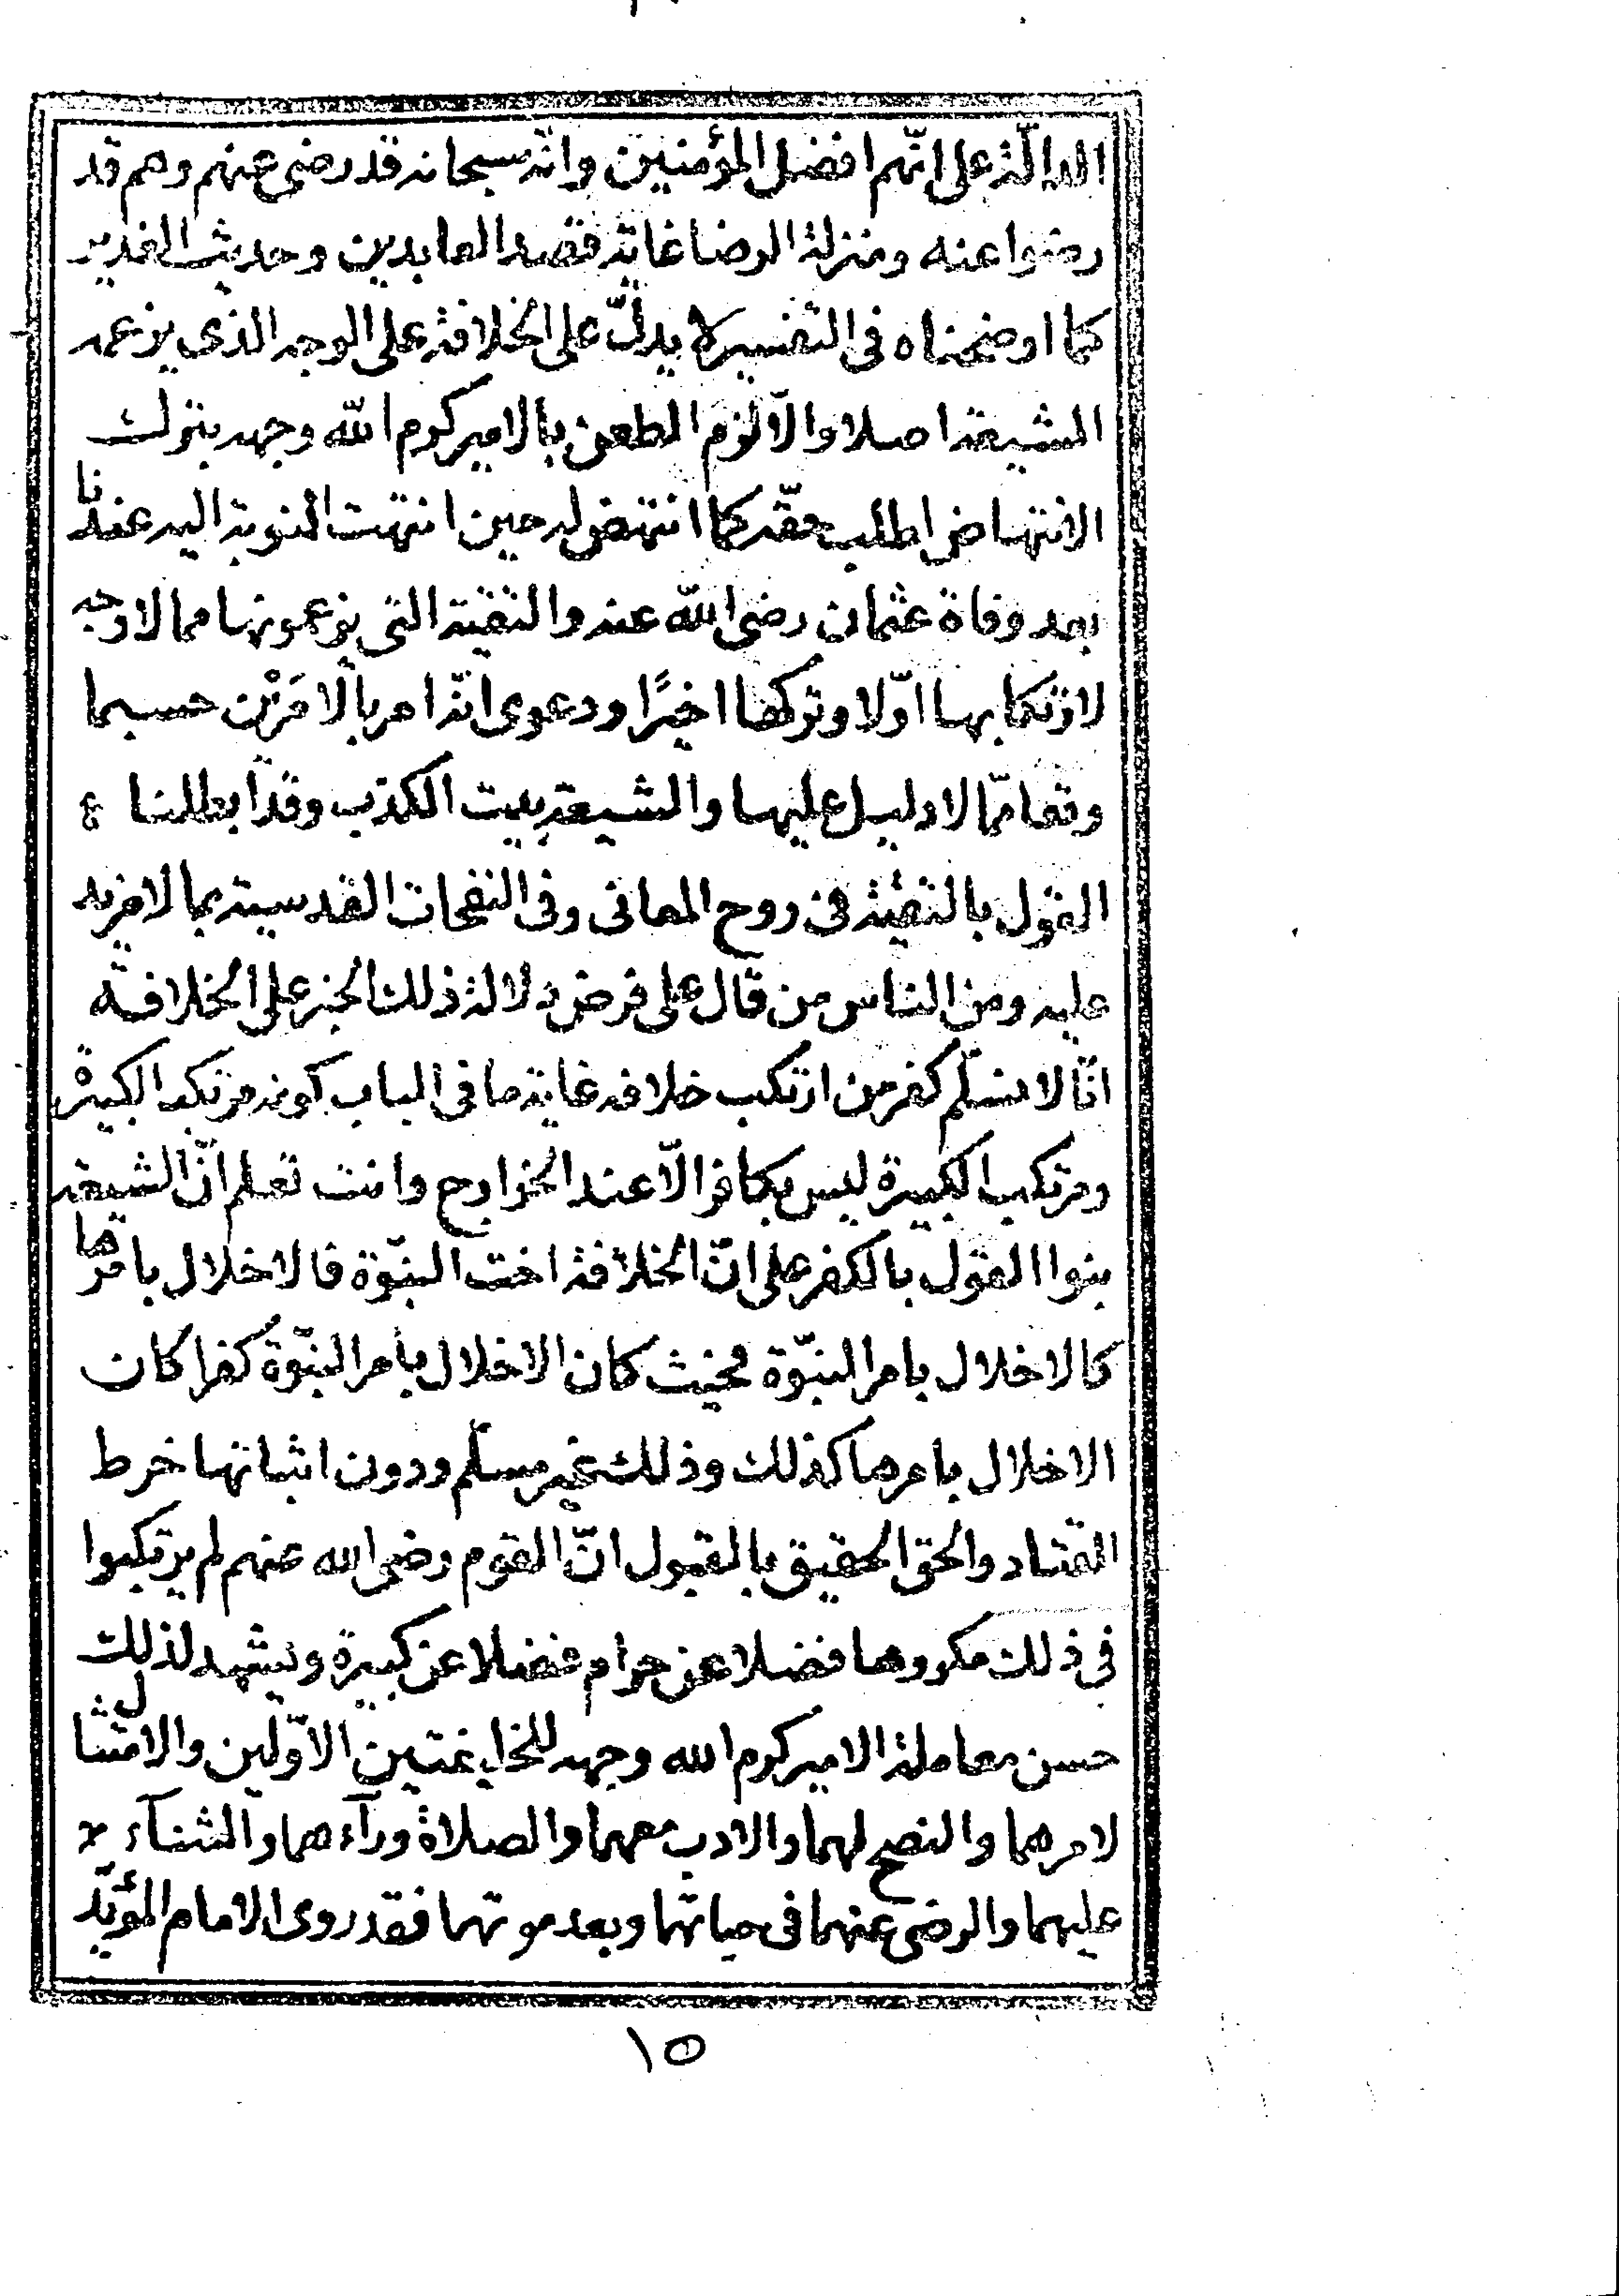 الدالّة على انّهم افضل المؤمنين وانّه سبحانه قد رضى عنهم وهم قد
رضوا عنه ومنزلة الرضا غاية قصد العابدين وحديث الغدير
كما اوضحناه فى التفسير لا يدلّ على الخلافة على الوجه الذى يزعمه
الشيعة اصلا والّا لزم الطعن بالامير كرم الله وجهه بترك
الانتهاض لطلب حقّه كما انتهض له حين انتهت النوبة اليه عندنا
بعد وفاة عثمان رضى الله عنه والتقيّة التى يزعمونها مما لا وجه
لارتكابها اوّلا وتركها اخيرًا ودعوى انّه امر بالامرَيْن حسبما
وقعا ممّا لا دليل عليها والشيعة بيت الكذب وقد ابطلنا
القول بالتقيّة فى روح المعانى وفى النفحات القدسية بما لا مزيد
عليه ومن الناس من قال على فرض دلالة ذلك الخبر على الخلافة
انّا لا نسلّم كفر من ارتكب خلافه غاية ما فى الباب كونه مرتكب الكبيرة
ومرتكب الكبيرة ليس بكافر الّا عند الخوارج وانت تعلم انّ الشيعة
بنوا القول بالكفر على انّ الخلافة اخت النبوّة فالاخلال بامرها
كالاخلال بامر النبوّة فحيث كان الاخلال بامر النبوّة كفرا كان
الاخلال بامرها كذلك وذلك غير مسلّم ودون اثباتها خرط
القتاد والحق الحقيق بالقبول انّ القوم رضى الله عنهم لم يرتكبوا
فى ذلك مكروها فضلا عن حرام فضلا عن كبيرة ويشهد لذلك
حسن معاملة الامير كرم الله وجهه للخليفتين الاوّلين والامتثال
لامرهما والنصح لهما والادب معهما والصلاة ورآءهما والثنآء
عليهما والرضى عنهما فى حياتهما وبعد موتهما فقد روى الامام المؤيّد
١٥